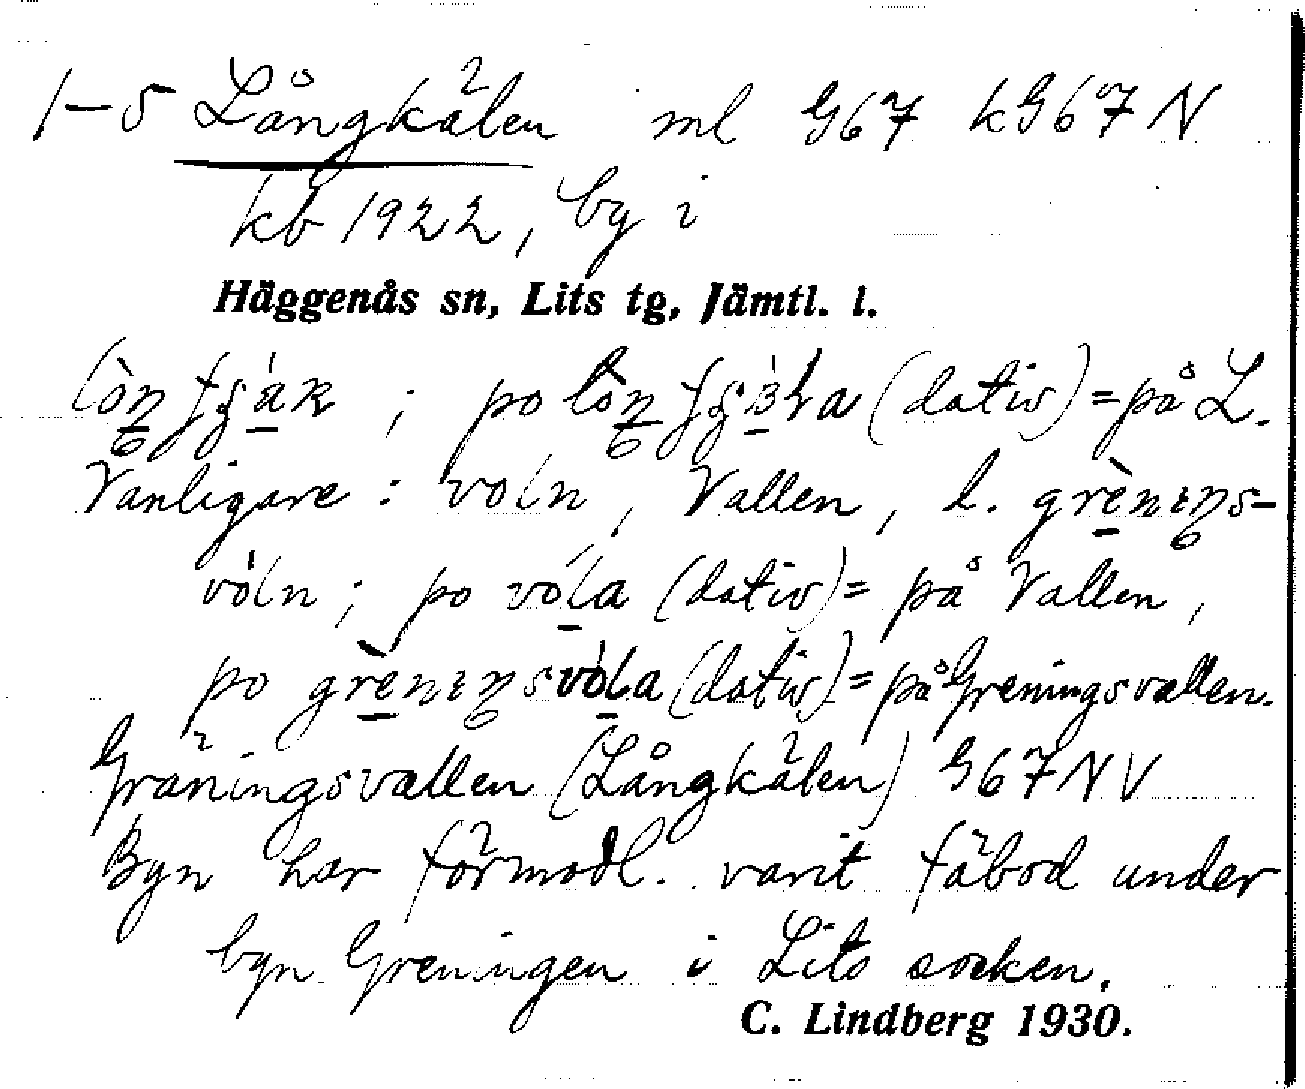 1-5 Långkälen ml G67 kG67N
kb 1922, by i
Häggenås sn, Lits tg, Jämtl. l.
; po (dativ) = på L.
Vanligare: voln, Vallen, l. grèniŋs-
vóln; po vóla (dativ) = på Vallen,
po grèniŋsvòla (dativ) = på Greningsvallen.
Gräningsvallen (Långkälen) G67NV
Byn har förmodl. varit fäbod under
byn Greningen i Lits socken.
C. Lindberg 1930.